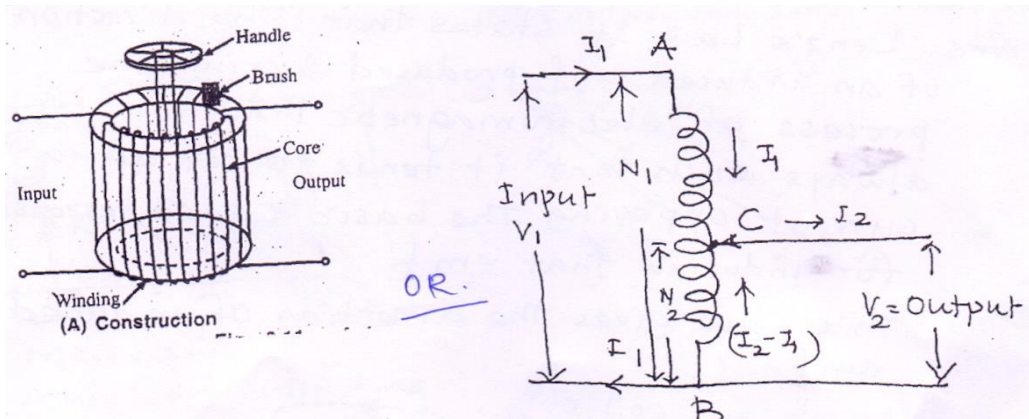 Handle
Brush
Core
Input
Output
Winding
(A) Construction
OR.
I1
A
N1
I1
Input
V1
C → I2
N2
V2 = Output
(I2 - I1)
I1
B